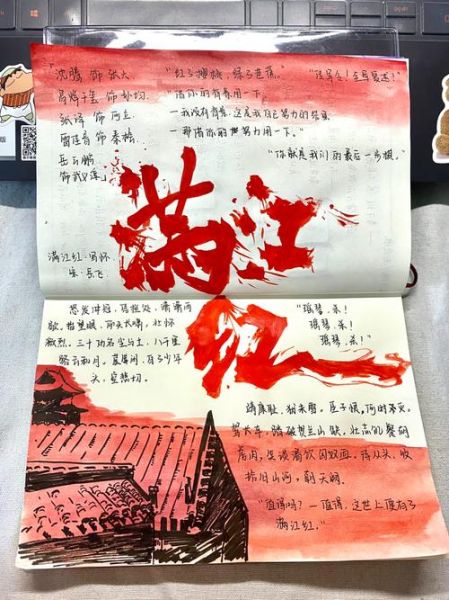 沈腾 饰 张大
易烊千玺 饰 孙均
张译 饰 何立
雷佳音 饰 秦桧
岳云鹏
饰 武义淳
"红了樱桃，绿了芭蕉。"
"借你的青春用一下。
—我没有青春，这是我自己努力的结果
—那借你的努力用一下。"
"你就是我们的最后一步棋。"
满江红
满江红·写怀
宋·岳飞
怒发冲冠，凭栏处，潇潇雨
歇。抬望眼，仰天长啸，壮怀
激烈。三十功名尘与土，八千里
路云和月。莫等闲，白了少年
头，空悲切。
"瑶琴，杀！
瑶琴，杀！
瑶琴，杀！"
靖康耻，犹未雪。臣子恨，何时灭。
驾长车，踏破贺兰山缺。壮志饥餐胡
虏肉，笑谈渴饮匈奴血。待从头，收
拾旧山河，朝天阙。
"值得吗？—值得，这世上便有了
满江红。"